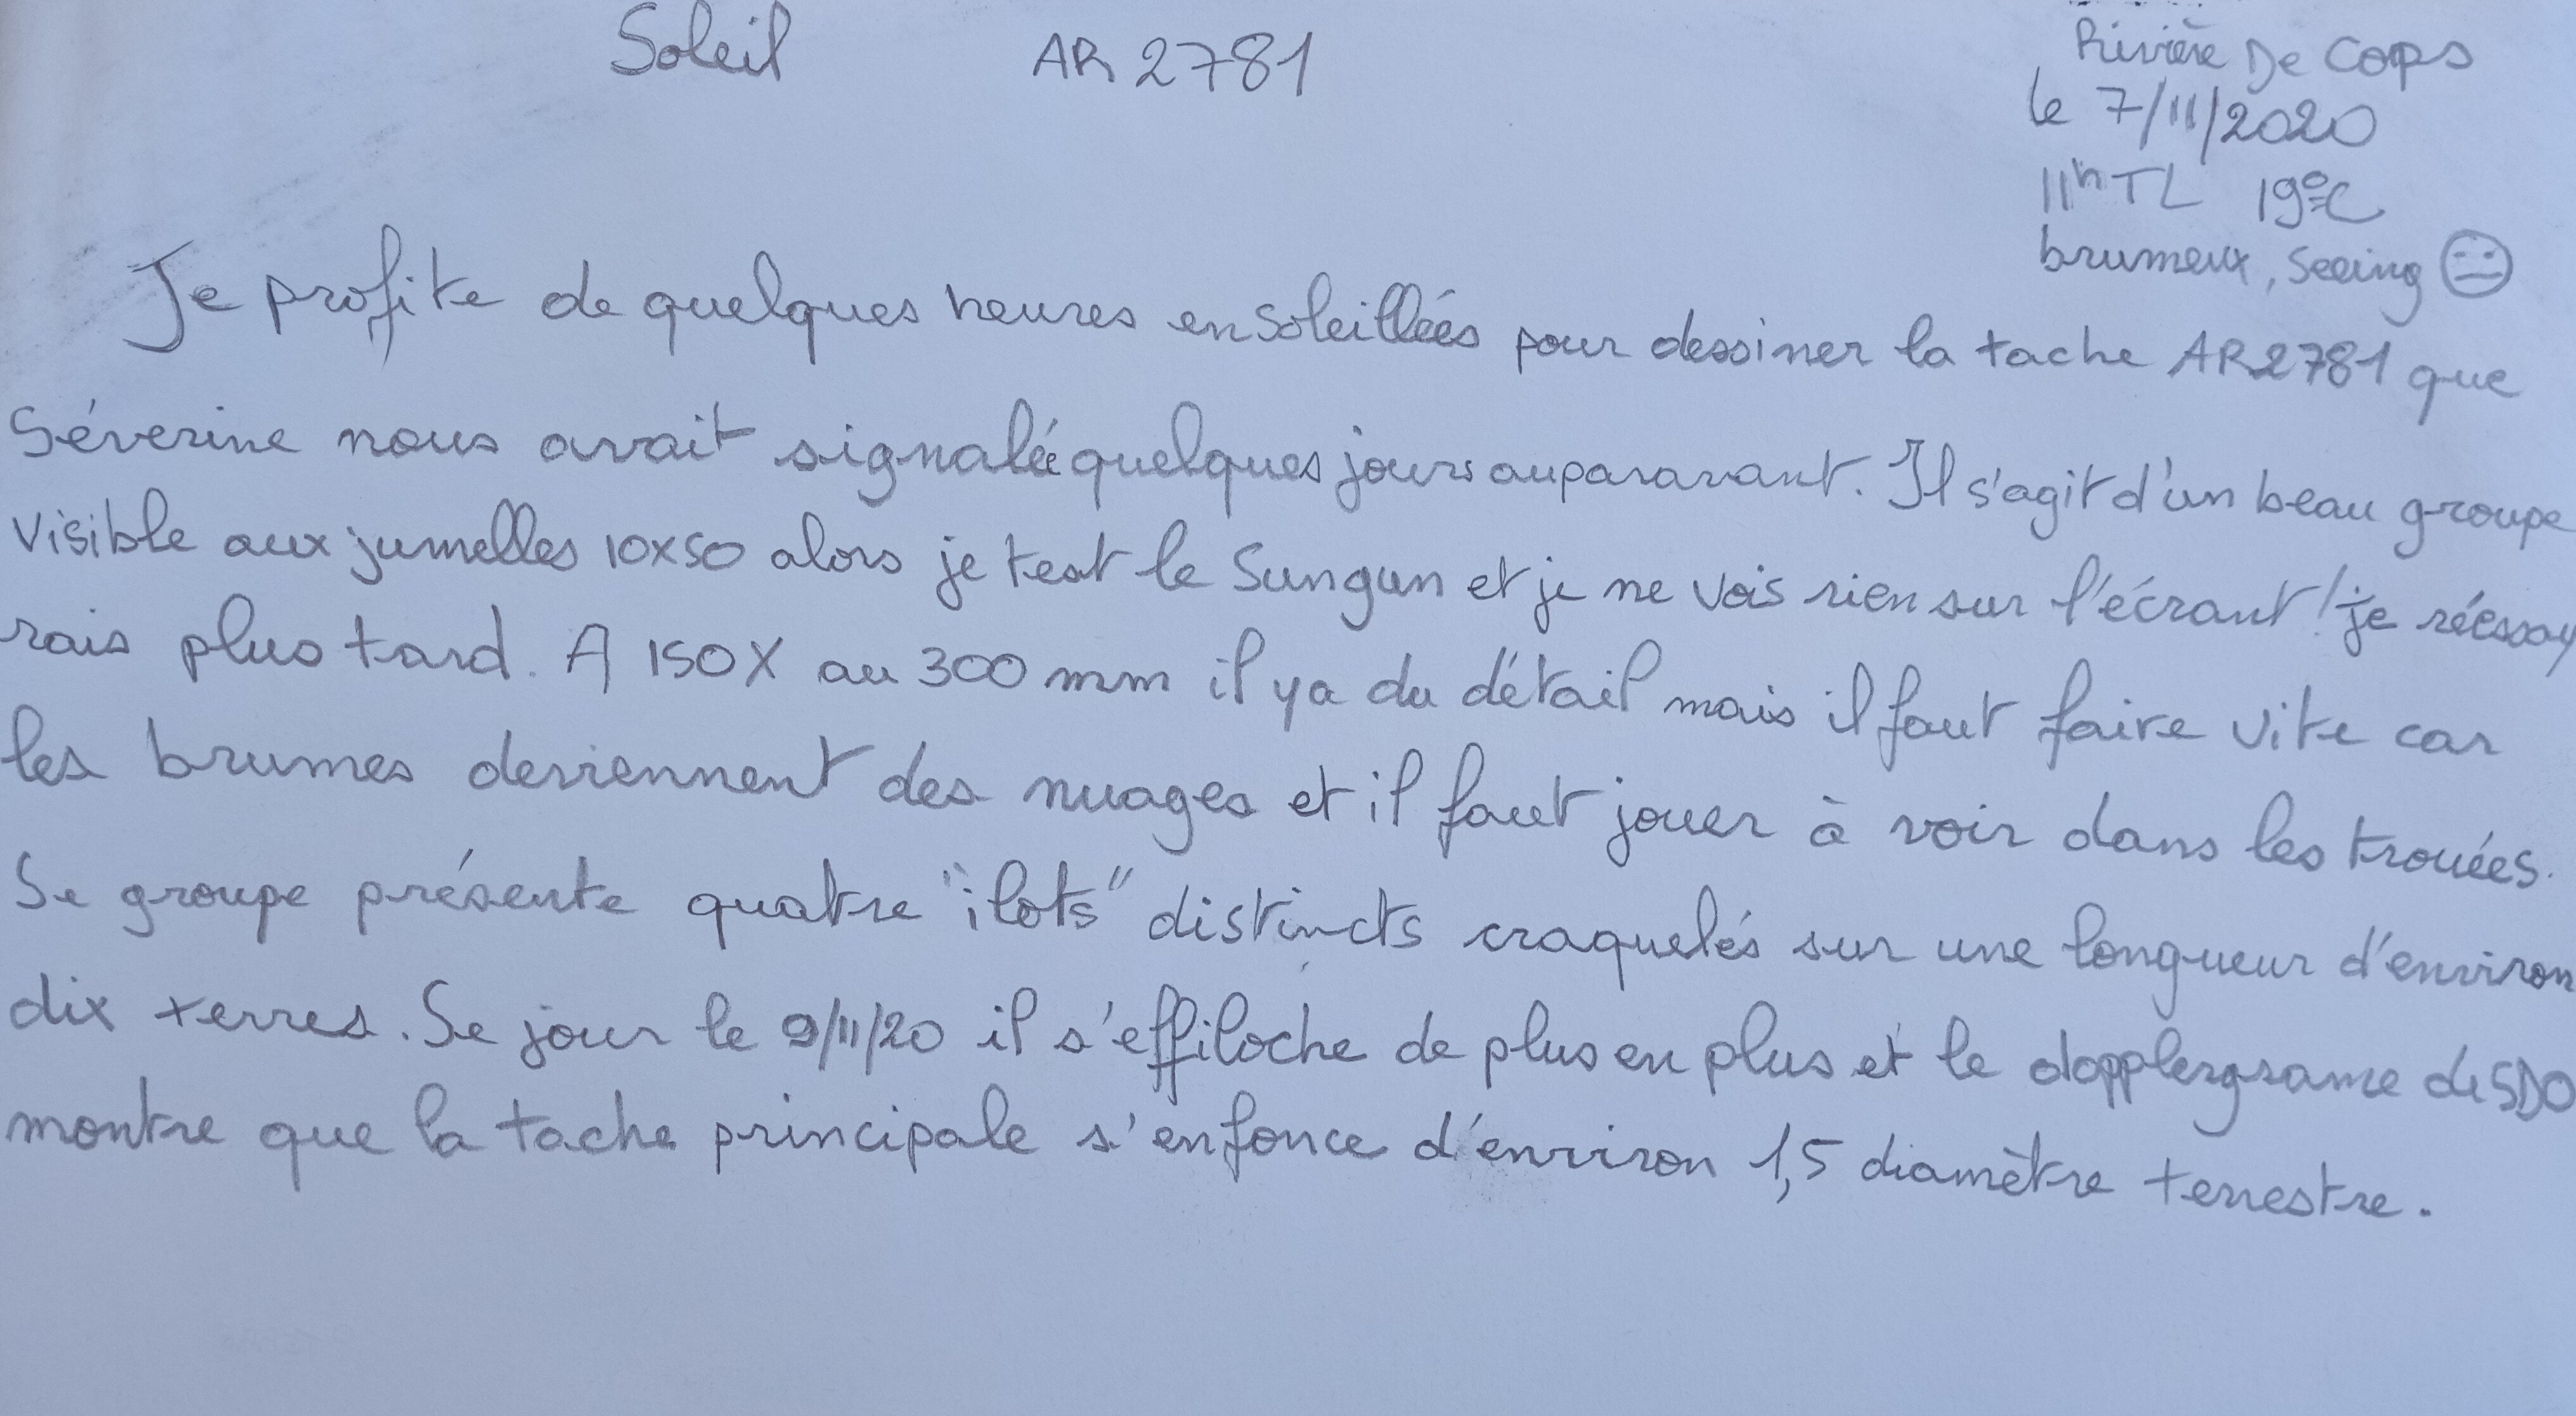 Soleil AR 2781
Rivière De Corps
le 7/11/2020
11h TL 19°C
brumeux, Seeing 😐
Je profite de quelques heures ensoleillées pour dessiner la tache AR2781 que
Séverine nous avait signalée quelques jours auparavant. Il s'agit d'un beau groupe
visible aux jumelles 10x50 alors je test le Sungun et je ne vois rien sur l'écrant! je réessay
rais plus tard. A 150X au 300 mm il y a du détail mais il faut faire vite car
les brumes deviennent des nuages et il faut jouer à voir dans les trouées.
Se groupe présente quatre "ilots" distincts craquelés sur une longueur d'environ
dix terres. Se jour le 9/11/20 il s'effiloche de plus en plus et le dopplergrame de SDO
montre que la tache principale s'enfonce d'environ 1,5 diamètre terrestre.